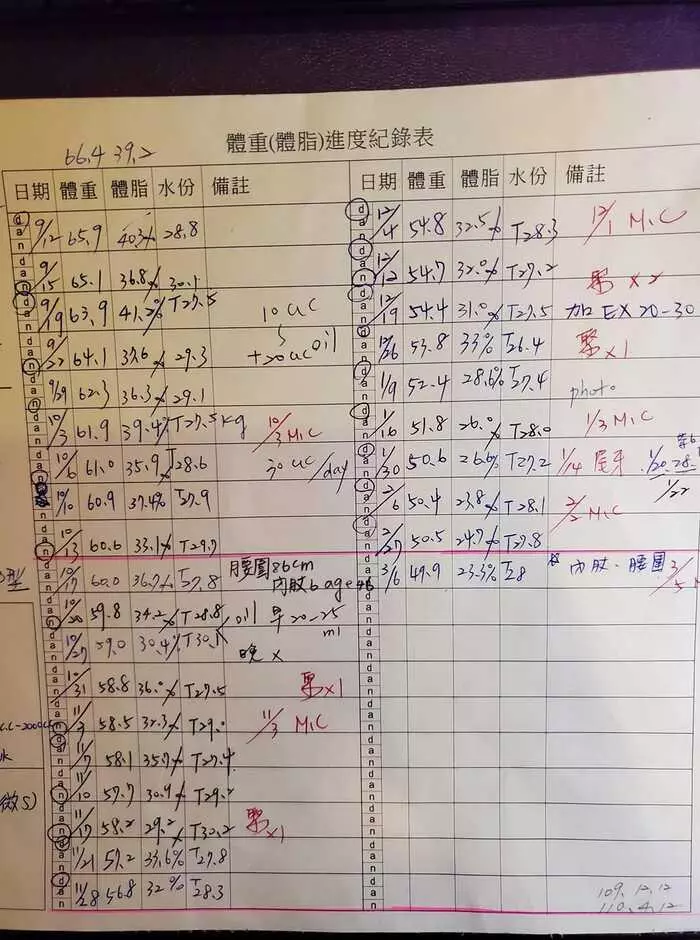 體重(體脂)進度紀錄表
66.4 39.2
日期 體重 體脂 水份 備註
9/12 65.9 40.3% 28.8
9/15 65.1 36.8% 30.1
9/19 63.9 41.2% T27.5 10cc
9/22 64.1 37.6% 29.3 +20cc oil
9/29 62.3 36.3% 29.1
10/3 61.9 39.4% T27.5kg 10/3 M.C
10/6 61.0 35.9% T28.6 30cc/day
10/10 60.9 37.4% T27.9
10/13 60.6 33.1% T29.7
10/17 60.0 36.7% T27.8 腰圍86cm
內肢6 age
10/20 59.8 34.2% T28.8 oil 早20-25 ml
10/27 59.0 30.4% T30.1 晚x
10/31 58.8 36.0% T27.5 x1
11/3 58.5 32.3% T29.0 11/3 M.C
11/7 58.1 35.7% T27.4
11/10 57.7 30.9% T29.2
11/17 58.2 29.2% T30.2 x1
11/21 57.2 33.6% T27.8
11/28 56.8 32% T28.3
日期 體重 體脂 水份 備註
12/4 54.8 32.5% T28.3 12/1 M.C
12/12 54.7 32.0% T27.2 x2
12/19 54.4 31.0% T27.5 加EX 20-30
12/26 53.8 33% T26.4 x1
1/9 52.4 28.6% T27.4 photo
1/16 51.8 26.0% T28.0 1/3 M.C
1/30 50.6 26.6% T27.2 1/14 尾牙 1/20.28 1/22
2/6 50.4 23.8% T28.1 2/2 M.C
2/27 50.5 24.7% T27.8
3/6 49.9 23.3% T28 內肢、腰圍 3/5
109.12.12
110.4.12